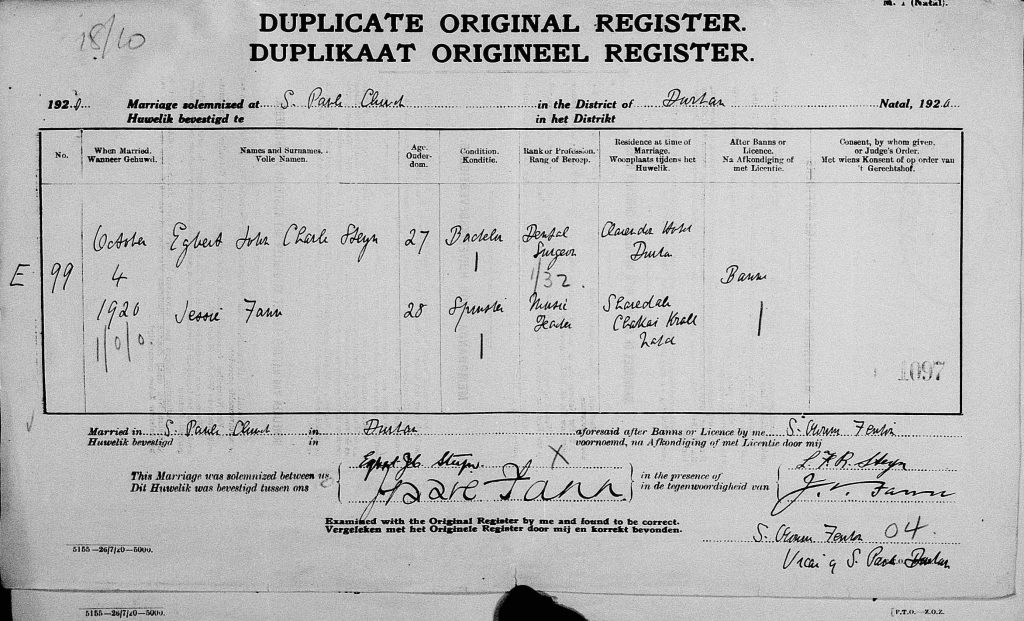 M. 1 (Natal).
18/10
DUPLICATE ORIGINAL REGISTER.
DUPLIKAAT ORIGINEEL REGISTER.
1920. Marriage solemnized at S. Pauls Church in the District of Durban Natal, 1920
Huwelik bevestigd te in het Distrikt
No. When Married. Names and Surnames. Age. Condition. Rank or Profession. Residence at time of Marriage. After Banns or Licence. Consent, by whom given, or Judge's Order.
Wanneer Gehuwd. Volle Namen. Ouderdom. Konditie. Rang of Beroep. Woonplaats tijdens het Huwelik. Na Afkondiging of met Licentie. Met wiens Konsent of op order van 't Gerechtshof.
October Egbert John Charles Steyn 27 Bachelor Dental Surgeon Clarendon Hotel Durban
E 99 4 1/32. Banns
1920 Jessie Fann 28 Spinster Music Teacher Chakas Kraal Natal
1/0/0.
1097
Married in S. Pauls Church in Durban aforesaid after Banns or Licence by me S. Fenton
Huwelik bevestigd in voornoemd, na Afkondiging of met Licentie door mij
This Marriage was solemnized between us Steyn. X in the presence of L. F. R. Steyn
Dit Huwelik was bevestigd tussen ons Fann. in de tegenwoordigheid van J. V. Fann
Examined with the Original Register by me and found to be correct.
Vergeleken met het Originele Register door mij en korrekt bevonden.
S. Fenton 04.
Vicar of S. Pauls Durban
5155—26/7/20—5000.
5155—26/7/20—5000.
[P.T.O.—Z.O.Z.